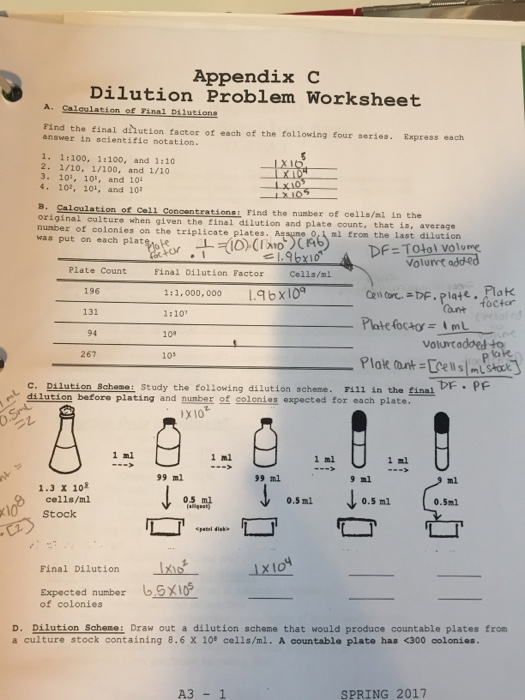 Appendix C
Dilution Problem Worksheet
A. Calculation of Final Dilutions
Find the final dilution factor of each of the following four series. Express each
answer in scientific notation.
1. 1:100, 1:100, and 1:10 1X10⁵
2. 1/10, 1/100, and 1/10 1X10⁴
3. 10², 10¹, and 10² 1X10⁵
4. 10², 10¹, and 10² 1X10⁵
B. Calculation of Cell Concentrations: Find the number of cells/ml in the
original culture when given the final dilution and plate count, that is, average
number of colonies on the triplicate plates. Assume 0.1 ml from the last dilution
was put on each plate.
Plate factor 1/.1 = (10)
= 1.96x10⁹
DF = Total volume
volume added
Plate Count Final Dilution Factor Cells/ml
196 1:1,000,000 1.96x10⁹
131
94
267 10⁵
Cell conc. = DF . plate count . Plate factor
Plate factor = 1 mL
volume added to plate
Plate count = [cells/mL stock]
DF . PF
C. Dilution Scheme: Study the following dilution scheme. Fill in the final
dilution before plating and number of colonies expected for each plate.
1X10²
0.5mL
=2
1 ml 1 ml 1 ml 1 ml
--->  ---> ---> --->
99 ml 99 ml 9 ml 9 ml
1.3 X 10⁸
cells/ml
Stock
0.5 ml 0.5 ml 0.5 ml 0.5ml
(aliquot)
<petri dish>
Final Dilution 1x10² 1x10⁴
Expected number 6.5X10⁵
of colonies
D. Dilution Scheme: Draw out a dilution scheme that would produce countable plates from
a culture stock containing 8.6 X 10⁸ cells/ml. A countable plate has <300 colonies.
A3 - 1 SPRING 2017